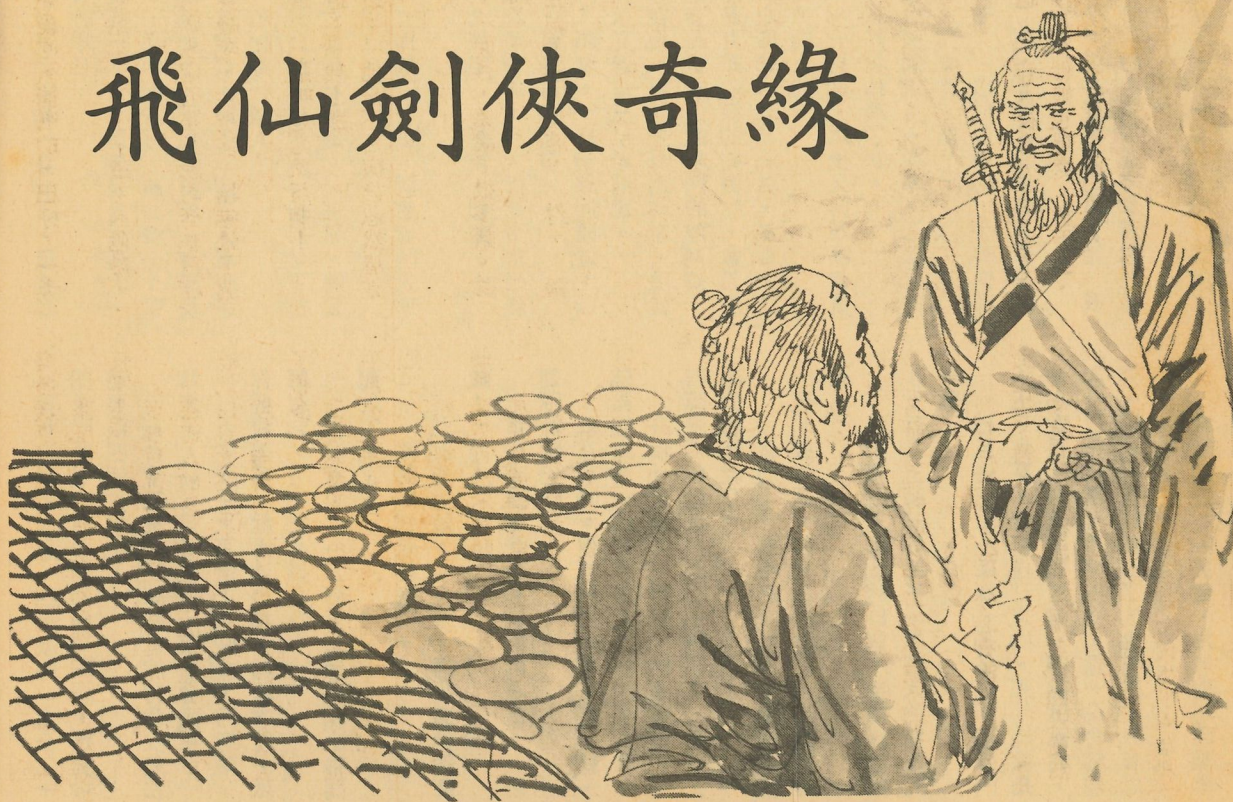 飛仙劍俠奇緣